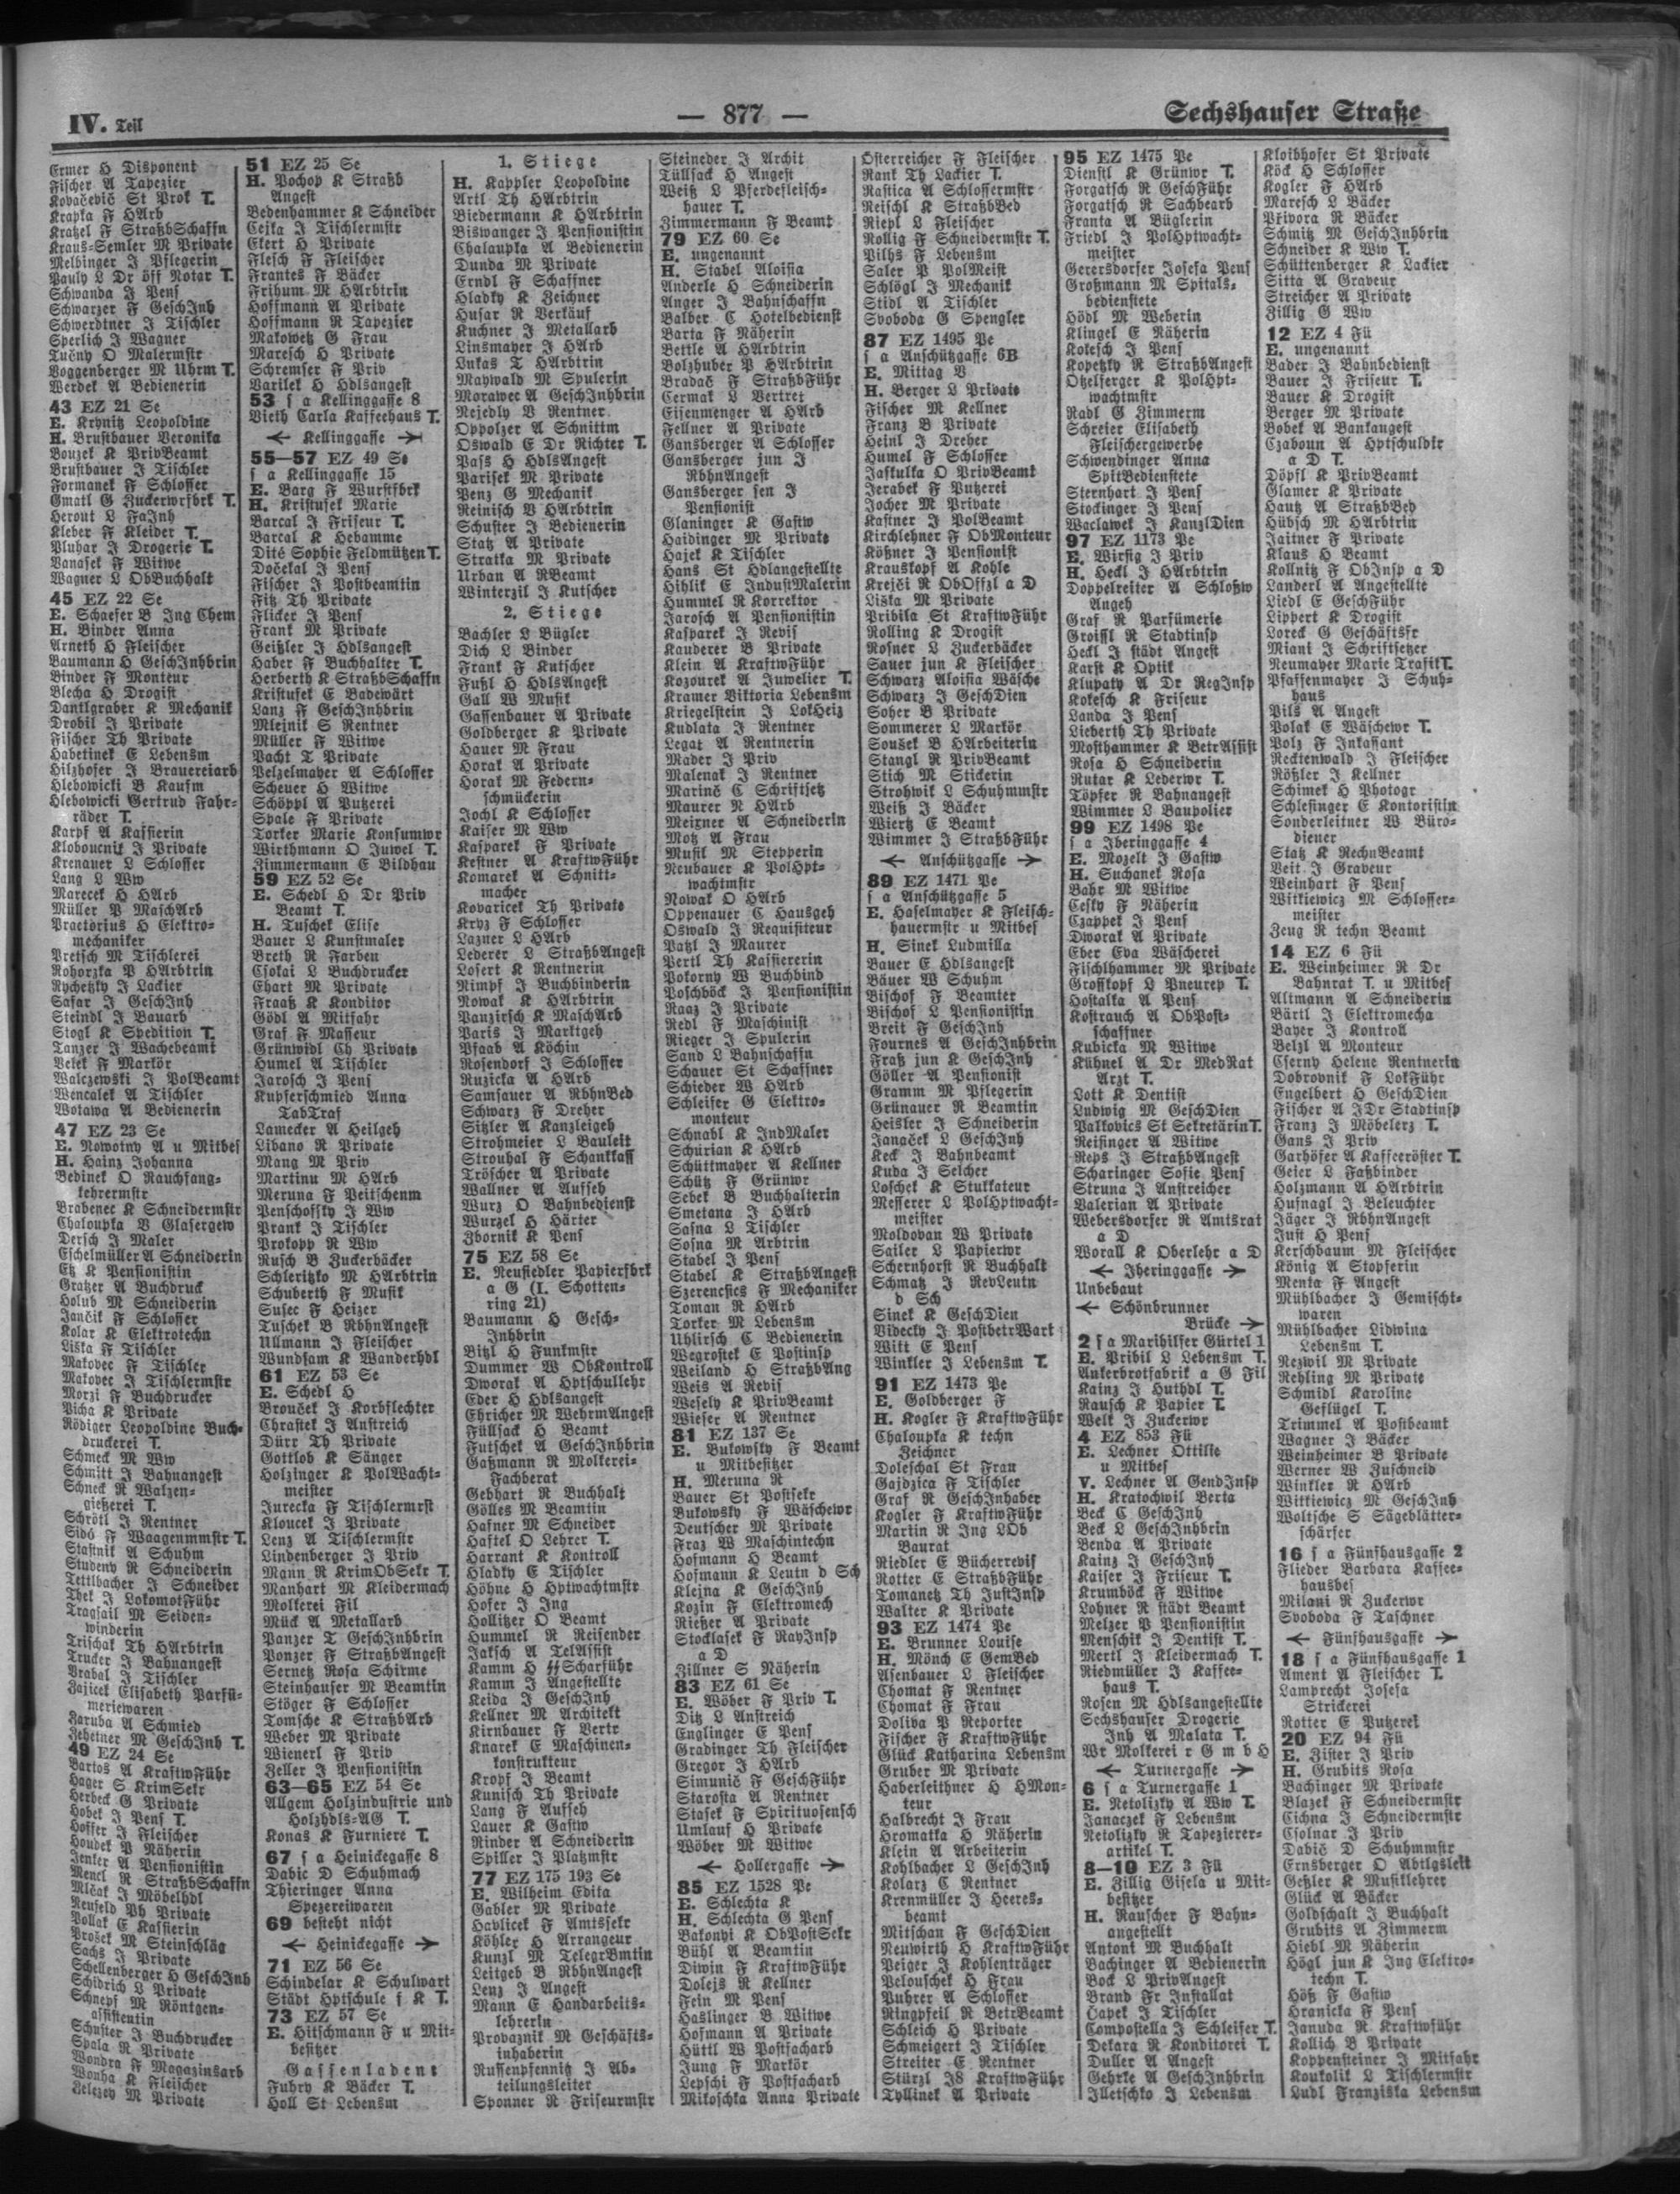 IV. Teil
— 877 —
Sechshauser Straße
Ermer H Disponent
Fischer A Tapezier
Kovačevič St Prok T.
Krapka F HArb
Kratzel F StraßbSchaffn
Kraus-Semler M Private
Melbinger J Pflegerin
Pauly L Dr öff Notar T.
Schwanda J Pens
Schwarzer F GeschInh
Schwerdtner J Tischler
Sperlich J Wagner
Tučny O Malermstr
Voggenberger M Uhrm T.
Werdek A Bedienerin
43 EZ 21 Se
E. Krynitz Leopoldine
H. Brustbauer Veronika
Bouzek K PrivBeamt
Brustbauer J Tischler
Formanek F Schlosser
Gmatl G Zuckerwrfbrk T.
Herout L FaInh
Kleber F Kleider T.
Pluhar J Drogerie T.
Vanasek F Witwe
Wagner L ObBuchhalt
45 EZ 22 Se
E. Schaefer B Ing Chem
H. Binder Anna
Arneth H Fleischer
Baumann H GeschInhbrin
Binder F Monteur
Blecha H Drogist
Dantlgraber K Mechanik
Drobil J Private
Fischer Th Private
Habetinek E Lebensm
Hilzhofer J Brauereiarb
Hlebowicki B Kaufm
Hlebowicki Gertrud Fahr-
räder T.
Karpf A Kassierin
Kloboucnik J Private
Krenauer L Schlosser
Lang L Ww
Marecek H HArb
Müller P MaschArb
Praetorius H Elektro-
mechaniker
Pretsch M Tischlerei
Rohorzka P HArbtrin
Rychetzky J Lackier
Safar J GeschInh
Steindl J Bauarb
Stogl K Spedition T.
Tanzer J Wachebeamt
Velek F Markör
Walczewski J PolBeamt
Wencalek A Tischler
Wotawa A Bedienerin
47 EZ 23 Se
E. Nowotny A u Mitbes
H. Hainz Johanna
Bedinek O Rauchfang-
kehrermstr
Brabenec K Schneidermstr
Chaloupka V Glasergew
Dersch J Maler
Eschelmüller A Schneiderin
Etz K Pensionistin
Gratzer A Buchdruck
Holub M Schneiderin
Jančik F Schlosser
Kolar K Elektrotechn
Liska F Tischler
Makovec F Tischler
Makovec J Tischlermstr
Morzi F Buchdrucker
Picha K Private
Rödiger Leopoldine Buch-
druckerei T.
Schmeck M Ww
Schmitt J Bahnangest
Schneck R Walzen-
gießerei T.
Schrötl J Rentner
Sidó F Waagenmmstr T.
Stastnik A Schuhm
Studeny R Schneiderin
Tettlbacher J Schneider
Thek J LokomotFühr
Tragsail M Seiden-
winderin
Trischak Th HArbtrin
Trucker J Bahnangest
Vrabal J Tischler
Zajicek Elisabeth Parfü-
meriewaren
Zaruba A Schmied
Zehetner M GeschInh T.
49 EZ 24 Se
Bartos A KraftwFühr
Hager S KrimSekr
Herbeck G Private
Hobek J Pens T.
Hoffer J Fleischer
Houdek P Näherin
Jenker A Pensionistin
Mencl R StraßbSchaffn
Mlčak J Möbelhdl
Neufeld Ph Private
Pollak E Kassierin
Prošek M Steinschläg
Sachs J Private
Schellenberger H GeschInh
Schidrich L Private
Schnepf M Röntgen-
assistentin
Schuster J Buchdrucker
Spala R Private
Wondra F Magazinsarb
Wonka K Fleischer
Zelezey M Private
51 EZ 25 Se
H. Pochop K Straßb
Angest
Bedenhammer K Schneider
Cejka J Tischlermstr
Ekert H Private
Flesch F Fleischer
Frantes F Bäcker
Frihum M HArbtrin
Hoffmann A Private
Hoffmann R Tapezier
Makowetz G Frau
Maresch H Private
Schremser F Priv
Varilek H Hdlsangest
53 s a Kellinggasse 8
Vieth Carla Kaffeehaus T.
← Kellinggasse →
55—57 EZ 49 Se
s a Kellinggasse 15
E. Barg F Wurstfbrk
H. Kristufek Marie
Barcal J Friseur T.
Barcal K Hebamme
Dité Sophie Feldmützen T.
Dočekal J Pens
Fischer J Postbeamtin
Fitz Th Private
Flicker J Pens
Frank M Private
Geißler J Hdlsangest
Haber F Buchhalter T.
Herberth K StraßbSchaffn
Kristufek E Badewärt
Lanz F GeschInhbrin
Mlejnik S Rentner
Müller F Witwe
Pacht T Private
Pelzelmayer A Schlosser
Scheuer H Witwe
Schöppl A Putzerei
Spale F Private
Torker Marie Konsumwr
Wirthmann O Juwel T.
Zimmermann E Bildhau
59 EZ 52 Se
E. Schedl H Dr Priv
Beamt T.
H. Tuschek Elise
Bauer L Kunstmaler
Breth R Farben
Csokai L Buchdrucker
Ehart M Private
Fraaß K Konditor
Gödl A Mitfahr
Graf F Masseur
Grünwidl Ch Private
Humel A Tischler
Jarosch J Pens
Kupferschmied Anna
TabTraf
Lamecker A Heilgeh
Libano R Private
Mang M Priv
Martinu M HArb
Meruna F Peitschenm
Penschofsky J Ww
Prank J Tischler
Prokopp R Ww
Rusch B Zuckerbäcker
Schleritzko M HArbtrin
Schuberth F Musik
Susec F Heizer
Tuschek B RbhnAngest
Ullmann J Fleischer
Wundsam K Wanderhdl
61 EZ 53 Se
E. Schedl H
Brouček J Korbflechter
Chrastek J Anstreich
Dürr Th Private
Gottlob K Sänger
Holzinger K PolWacht-
meister
Jurecka F Tischlermrst
Kloucek J Private
Lenz A Tischlermstr
Lindenberger J Priv
Mann R KrimObSekr T.
Manhart M Kleidermach
Molkerei Fil
Mück A Metallarb
Panzer T GeschInhbrin
Ponzer F StraßbAngest
Sernetz Rosa Schirme
Steinhauser M Beamtin
Stöger F Schlosser
Tomsche K StraßbArb
Weber M Private
Wienerl F Priv
Zeller J Pensionistin
63—65 EZ 54 Se
Allgem Holzindustrie und
Holzhdls-AG T.
Konas K Furniere T.
67 s a Heinickegasse 8
Dabic D Schuhmach
Thieringer Anna
Spezereiwaren
69 besteht nicht
← Heinickegasse →
71 EZ 56 Se
Schindelar K Schulwart
Städt Hptschule f K T.
73 EZ 57 Se
E. Hitschmann F u Mit-
besitzer
Gassenladent
Fuhry K Bäcker T.
Holl St Lebensm
1. Stiege
H. Kappler Leopoldine
Artl Th HArbtrin
Biedermann K HArbtrin
Biswanger J Pensionistin
Chalaupka A Bedienerin
Dunda M Private
Erndl F Schaffner
Hladky K Zeichner
Husar R Verkäuf
Kuchner J Metallarb
Linsmayer J HArb
Lukas T HArbtrin
Maywald M Spulerin
Morawec A GeschInhbrin
Nejedly V Rentner
Oppolzer A Schnittm
Oswald E Dr Richter T.
Pass H HdlsAngest
Parisek M Private
Penz G Mechanik
Reinisch V HArbtrin
Schuster J Bedienerin
Statz A Private
Stratka M Private
Urban A RBeamt
Winterzil J Kutscher
2. Stiege
Bachler L Bügler
Dich L Binder
Frank F Kutscher
Fußl H HdlsAngest
Gall W Musik
Gassenbauer A Private
Goldberger K Private
Hauer M Frau
Horak A Private
Horak M Federn-
schmückerin
Jochl K Schlosser
Kaiser M Ww
Kasparek F Private
Kestner A KraftwFühr
Komarek A Schnitt-
macher
Kovaricek Th Private
Kryz F Schlosser
Lazner L HArb
Lederer L StraßbAngest
Losert K Rentnerin
Nimpf J Buchbinderin
Nowak K HArbtrin
Panzirsch K MaschArb
Paris J Marktgeh
Pfaab A Köchin
Rosendorf J Schlosser
Ruzicka A HArb
Samsauer A RbhnBed
Schwarz F Dreher
Sitzler A Kanzleigeh
Strohmeier L Bauleit
Strouhal F Schankkass
Tröscher A Private
Wallner A Aufseh
Wurz O Bahnbedienst
Wurzel H Härter
Zbornik K Pens
75 EZ 58 Se
E. Neusiedler Papierfbrk
a G (I. Schotten-
ring 21)
Baumann H Gesch-
Inhbrin
Bitzl H Funkmstr
Dummer W ObKontroll
Dworak A Hptschullehr
Eder H Hdlsangest
Ehricher M WehrmAngest
Füllsack H Beamt
Futschek A GeschInhbrin
Gaßmann R Molkerei-
Fachberat
Gebhart R Buchhalt
Gölles M Beamtin
Hafner M Schneider
Haftel O Lehrer T.
Harrant K Kontroll
Hladky E Tischler
Höhne H Hptwachtmstr
Hofer J Ing
Hollitzer O Beamt
Hummel R Reisender
Jaksch A TelAssist
Kamm H ϟϟScharführ
Kamm J Angestellte
Keida J GeschInh
Kellner M Architekt
Kirnbauer F Vertr
Knarek E Maschinen-
konstrukteur
Kropf J Beamt
Kunisch Th Private
Lang F Aufseh
Lauer K Gastw
Rinder A Schneiderin
Spiller J Platzmstr
77 EZ 175 193 Se
E. Wilheim Edita
Gabler M Private
Havlicek F Amtssekr
Köhler H Arrangeur
Kunzl M TelegrBmtin
Leitgeb B RbhnAngest
Lenz J Angest
Mann E Handarbeits-
lehrerin
Provaznik M Geschäfts-
inhaberin
Russenpfennig J Ab-
teilungsleiter
Sponner R Friseurmstr
Steineder J Archit
Tüllsack H Angest
Weiß L Pferdefleisch-
hauer T.
Zimmermann F Beamt
79 EZ 60 Se
E. ungenannt
H. Stabel Aloisia
Anderle H Schneiderin
Anger J Bahnschaffn
Balber C Hotelbedienst
Barta F Näherin
Bettle A HArbtrin
Bolzhuber P HArbtrin
Bradač F StraßbFühr
Cermak L Vertret
Eisenmenger A HArb
Fellner A Private
Gansberger A Schlosser
Gansberger jun J
RbhnAngest
Gansberger sen J
Pensionist
Glaninger K Gastw
Haidinger M Private
Hajek K Tischler
Hans St Hdlangestellte
Hihlik E IndustMalerin
Hummel R Korrektor
Jarosch A Pensionistin
Kasparek J Revis
Kauderer B Private
Klein A KraftwFühr
Kozourek A Juwelier T.
Kramer Viktoria Lebensm
Kriegelstein J LokHeiz
Kudlata J Rentner
Legat A Rentnerin
Mader J Priv
Malenak J Rentner
Marinč C Schriftsetz
Maurer R HArb
Meixner A Schneiderin
Motz A Frau
Musil M Stepperin
Neubauer K PolHpt-
wachtmstr
Nowak O HArb
Oppenauer C Hausgeh
Oswald J Requisiteur
Patzl J Maurer
Pertl Th Kassiererin
Pokorny W Buchbind
Poschböck J Pensionistin
Raaz J Private
Redl F Maschinist
Rieger J Spulerin
Sand L Bahnschaffn
Schauer St Schaffner
Schieder W HArb
Schleifer G Elektro-
monteur
Schnabl K IndMaler
Schürian K HArb
Schüttmayer A Kellner
Schütz F Grünwr
Sebek B Buchhalterin
Smetana J HArb
Sosna L Tischler
Sosna M Arbtrin
Stabel J Pens
Stabel K StraßbAngest
Szerencsics F Mechaniker
Toman R HArb
Torker M Lebensm
Uhlirsch C Bedienerin
Wegrostek E Postinsp
Weiland H StraßbAng
Weis A Revis
Wesely K PrivBeamt
Wieser A Rentner
81 EZ 137 Se
E. Bukowsky F Beamt
u Mitbesitzer
H. Meruna R
Bauer St Postsekr
Bukowsky F Wäschewr
Deutscher M Private
Fraz W Maschintechn
Hofmann H Beamt
Hofmann K Leutn d Sch
Klejna K GeschInh
Kozin F Elektromech
Rießer A Private
Stocklasek F RayInsp
a D
Zillner S Näherin
83 EZ 61 Se
E. Wöber F Priv T.
Ditz L Anstreich
Englinger E Pens
Gradinger Th Fleischer
Gregor J HArb
Simunič F GeschFühr
Starosta A Rentner
Stasek F Spirituosensch
Umlauf H Private
Wöber M Witwe
← Hollergasse →
85 EZ 1528 Pe
E. Schlechta K
H. Schlechta G Pens
Bakonyi K ObPostSekr
Bühl A Beamtin
Diwin F KraftwFühr
Dolejs R Kellner
Fein M Pens
Haslinger B Witwe
Hofmann A Private
Hüttl W Postfacharb
Jung F Markör
Lepschi F Postfacharb
Mikoschka Anna Private
Österreicher F Fleischer
Rank Th Lackier T.
Rastica A Schlossermstr
Reischl K StraßbBed
Riepl L Fleischer
Rollig F Schneidermstr T.
Pilhs F Lebensm
Saler P PolMeist
Schlögl J Mechanik
Stidl A Tischler
Svoboda G Spengler
87 EZ 1495 Pe
s a Anschützgasse 6B
E. Mittag V
H. Berger L Private
Fischer M Kellner
Franz B Private
Heinl J Dreher
Humel F Schlosser
Jaskulka O PrivBeamt
Jerabek F Putzerei
Jocher M Private
Kastner J PolBeamt
Kirchlehner F ObMonteur
Kößner J Pensionist
Krauskopf A Kohle
Krejči R ObOffzl a D
Liska M Private
Pribila St KraftwFühr
Rolling K Drogist
Rosner L Zuckerbäcker
Sauer jun K Fleischer
Schwarz Aloisia Wäsche
Schwarz J GeschDien
Soher B Private
Sommerer L Markör
Soušek B HArbeiterin
Stangl R PrivBeamt
Stich M Stickerin
Strohwik L Schuhmmstr
Weiß J Bäcker
Wiertz E Beamt
Wimmer J StraßbFühr
← Anschützgasse →
89 EZ 1471 Pe
s a Anschützgasse 5
E. Haselmayer K Fleisch-
hauermstr u Mitbes
H. Sinek Ludmilla
Bauer E Hdlsangest
Bäuer W Schuhm
Bischof F Beamter
Bischof L Pensionistin
Breit F GeschInh
Fournes A GeschInhbrin
Fraß jun K GeschInh
Göller A Pensionist
Gramm M Pflegerin
Grünauer R Beamtin
Heisler J Schneiderin
Janaček L GeschInh
Keck J Bahnbeamt
Kuda J Selcher
Loschek K Stukkateur
Messerer L PolHptwacht-
meister
Moldovan W Private
Sailer L Papierwr
Schernhorst R Buchhalt
Schmatz J RevLeutn
d Sch
Sinek K GeschDien
Videcky J PostbetrWart
Witt E Pens
Winkler J Lebensm T.
91 EZ 1473 Pe
E. Goldberger F
H. Kogler F KraftwFühr
Chaloupka K techn
Zeichner
Doleschal St Frau
Gajdzica F Tischler
Graf R GeschInhaber
Kogler F KraftwFühr
Martin R Ing LOb
Baurat
Riedler E Bücherrevis
Rotter E StraßbFühr
Tomanetz Th JustInsp
Walter K Private
93 EZ 1474 Pe
E. Brunner Louise
H. Mönch E GemBed
Asenbauer L Fleischer
Chomat F Rentner
Chomat F Frau
Doliva P Reporter
Fischer F KraftwFühr
Glück Katharina Lebensm
Gruber M Private
Haberleithner H HMon-
teur
Halbrecht J Frau
Hromatka H Näherin
Klein A Arbeiterin
Kohlbacher L GeschInh
Kolarz C Rentner
Krenmüller J Heeres-
beamt
Mitschan F GeschDien
Neuwirth H KraftwFühr
Peiger J Kohlenträger
Pelouschek H Frau
Puhrer A Schlosser
Ringpfeil R BetrBeamt
Schleich H Private
Schmeigert J Tischler
Streiter E Rentner
Stürzl J8 KraftwFühr
Tyllinek A Private
95 EZ 1475 Pe
Dienstl K Grünwr T.
Forgatsch R GeschFühr
Forgatsch R Sachbearb
Franta A Büglerin
Friedl J PolHptwacht-
meister
Gerersdorfer Josefa Pens
Großmann M Spitals-
bedienstete
Hödl M Weberin
Klingel E Näherin
Kokesch J Pens
Kopetzky R StraßbAngest
Otzelferger K PolHpt-
wachtmstr
Radl G Zimmerm
Schreier Elisabeth
Fleischergewerbe
Schwendinger Anna
SpitBedienstete
Sternhart J Pens
Stockinger J Pens
Waclawek J KanzlDien
97 EZ 1173 Pe
E. Wirsig J Priv
H. Heckl J HArbtrin
Doppelreiter A Schloßw
Angeh
Graf R Parfümerie
Groiffl R Stadtinsp
Heckl J städt Angest
Karst K Optik
Klupaty A Dr RegInsp
Kokesch K Friseur
Landa J Pens
Lieberth Th Private
Mosthammer K BetrAssist
Rosa H Schneiderin
Rutar K Lederwr T.
Töpfer R Bahnangest
Wimmer L Baupolier
99 EZ 1498 Pe
s a Iberinggasse 4
E. Mozelt J Gastw
H. Suchanek Rosa
Bahr M Witwe
Cesky F Näherin
Czappek J Pens
Dworak A Private
Eber Eva Wäscherei
Fischlhammer M Private
Grosskopf L Pneurep T.
Hostalka A Pens
Kostrauch A ObPost-
schaffner
Kubicka M Witwe
Kühnel A Dr MedRat
Arzt T.
Lott K Dentist
Ludwig M GeschDien
Palkovics St Sekretärin T.
Reisinger A Witwe
Reps J StraßbAngest
Scharinger Sofie Pens
Struna J Anstreicher
Valerian A Private
Webersdorfer R Amtsrat
a D
Worall K Oberlehr a D
← Iberinggasse →
Unbebaut
← Schönbrunner
Brücke →
2 s a Marihilfer Gürtel 1
E. Pribil L Lebensm T.
Ankerbrotfabrik a G Fil
Kainz J Huthdl T.
Rausch K Papier T.
Welk J Zuckerwr
4 EZ 853 Fü
E. Lechner Ottilie
u Mitbes
V. Lechner A GendInsp
H. Kratochwil Berta
Beck C GeschInh
Beck L GeschInhbrin
Benda A Private
Kainz J GeschInh
Kaiser J Friseur T.
Krumböck F Witwe
Lohner R städt Beamt
Melzer P Pensionistin
Menschik J Dentist T.
Mertl J Kleidermach T.
Riedmüller J Kaffee-
haus T.
Rosen M Hdlsangestellte
Sechshauser Drogerie
Inh A Malata T.
Wr Molkerei r G m b H
← Turnergasse →
6 s a Turnergasse 1
E. Netolizky A Ww T.
Janaczek F Lebensm
Netolizky R Tapezierer-
artikel T.
8—10 EZ 3 Fü
E. Zillig Gisela u Mit-
besitzer
H. Rauscher F Bahn-
angestellt
Antoni M Buchhalt
Bachinger A Bedienerin
Bock L PrivAngest
Brand Fr Installat
Čapek J Tischler
Compostella J Schleifer T.
Dekara R Konditorei T.
Duller A Angest
Gehrke A GeschInhbrin
Illetschko J Lebensm
Kloibhofer St Private
Köck H Schlosser
Kogler F HArb
Maresch L Bäcker
Přivora R Bäcker
Schmitz M GeschInhbrin
Schneider K Ww T.
Schüttenberger K Lackier
Sitta A Graveur
Streicher A Private
Zillig G Ww
12 EZ 4 Fü
E. ungenannt
Bader J Bahnbedienst
Bauer J Friseur T.
Bauer K Drogist
Berger M Private
Bobek A Bankangest
Czaboun A Hptschuldir
a D T.
Döpfl K PrivBeamt
Glamer K Private
Hautz A StraßbBed
Hübsch M HArbtrin
Jaitner F Private
Klaus H Beamt
Kollnitz F ObInsp a D
Landerl A Angestellte
Liedl E GeschFühr
Lippert K Drogist
Loreck G Geschäftsfr
Miani J Schriftsetzer
Neumayer Marie Trafik T.
Pfaffenmayer J Schuh-
haus
Pils A Angest
Polak E Wäschewr T.
Polz F Inkassant
Recktenwald J Fleischer
Rößler J Kellner
Schimek H Photogr
Schlesinger E Kontoristin
Sonderleitner W Büro-
diener
Statz K RechnBeamt
Veit J Graveur
Weinhart F Pens
Witkiewicz M Schlosser-
meister
Zeug R techn Beamt
14 EZ 6 Fü
E. Weinheimer R Dr
Bahnrat T. u Mitbes
Altmann A Schneiderin
Bärtl J Elektromecha
Bayer J Kontroll
Belzl A Monteur
Cserny Helene Rentnerin
Dobrovnik F LokFühr
Engelbert H GeschDien
Fischer A JDr Stadtinsp
Franz J Möbelerz T.
Gans J Priv
Garhöfer A Kaffeeröster T.
Geier L Faßbinder
Holzmann A HArbtrin
Hufnagl J Beleuchter
Jäger J RbhnAngest
Just H Pens
Kerschbaum M Fleischer
König A Stopferin
Menta F Angest
Mühlbacher J Gemischt-
waren
Mühlbacher Lidwina
Lebensm T.
Nezwil M Private
Rehling M Private
Schmidl Karoline
Geflügel T.
Trimmel A Postbeamt
Wagner J Bäcker
Weinheimer B Private
Werner W Zuschneid
Winkler R HArb
Witkiewicz M GeschInh
Woltsche S Sägeblätter-
schärfer
16 s a Fünfhausgasse 2
Flieder Barbara Kaffee-
hausbes
Milani R Zuckerwr
Svoboda F Taschner
← Fünfhausgasse →
18 s a Fünfhausgasse 1
Ament A Fleischer T.
Lamprecht Josefa
Strickerei
Rotter E Putzerei
20 EZ 94 Fü
E. Zister J Priv
H. Grubits Rosa
Bachinger M Private
Blazek F Schneidermstr
Cichna J Schneidermstr
Csolnar J Priv
Dabič D Schuhmmstr
Ernsberger O Abtlgsleit
Geßler K Musiklehrer
Glück A Bäcker
Goldschalt J Buchhalt
Grubits A Zimmerm
Hiebl M Näherin
Högl jun K Ing Elektro-
techn T.
Höß F Gastw
Hranicka F Pens
Januda R Kraftwführ
Kollich B Private
Koppensteiner J Mitfahr
Koukolik L Tischlermstr
Ludl Franziska Lebensm